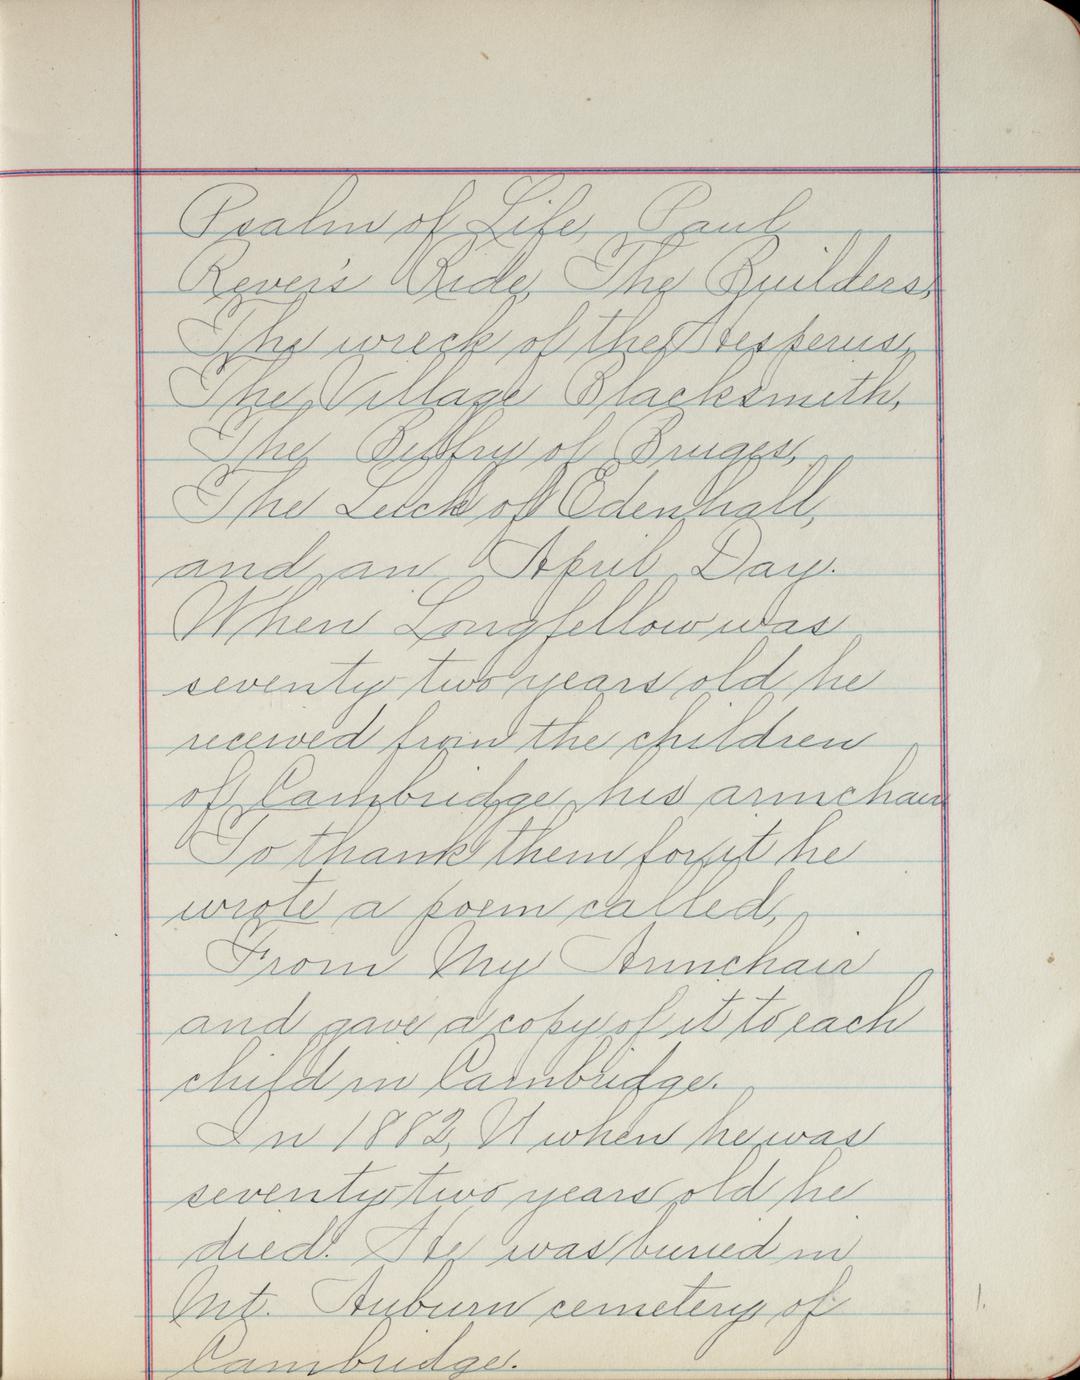 Psalm of Life, Paul
Rever's Ride, The Builders,
The wreck of the Hesperus,
The Village Blacksmith,
The Belfry of Bruges,
The Luck of Edenhall,
and an April Day.
When Longfellow was
seventy two years old he
received from the children
of Cambridge his armchair
To thank them for it he
wrote a poem called,
From My Armchair
and gave a copy of it to each
child in Cambridge.
In 1882, when he was
seventy two years old he
died. He was buried in
Mt. Auburn cemetery of
Cambridge.
1.